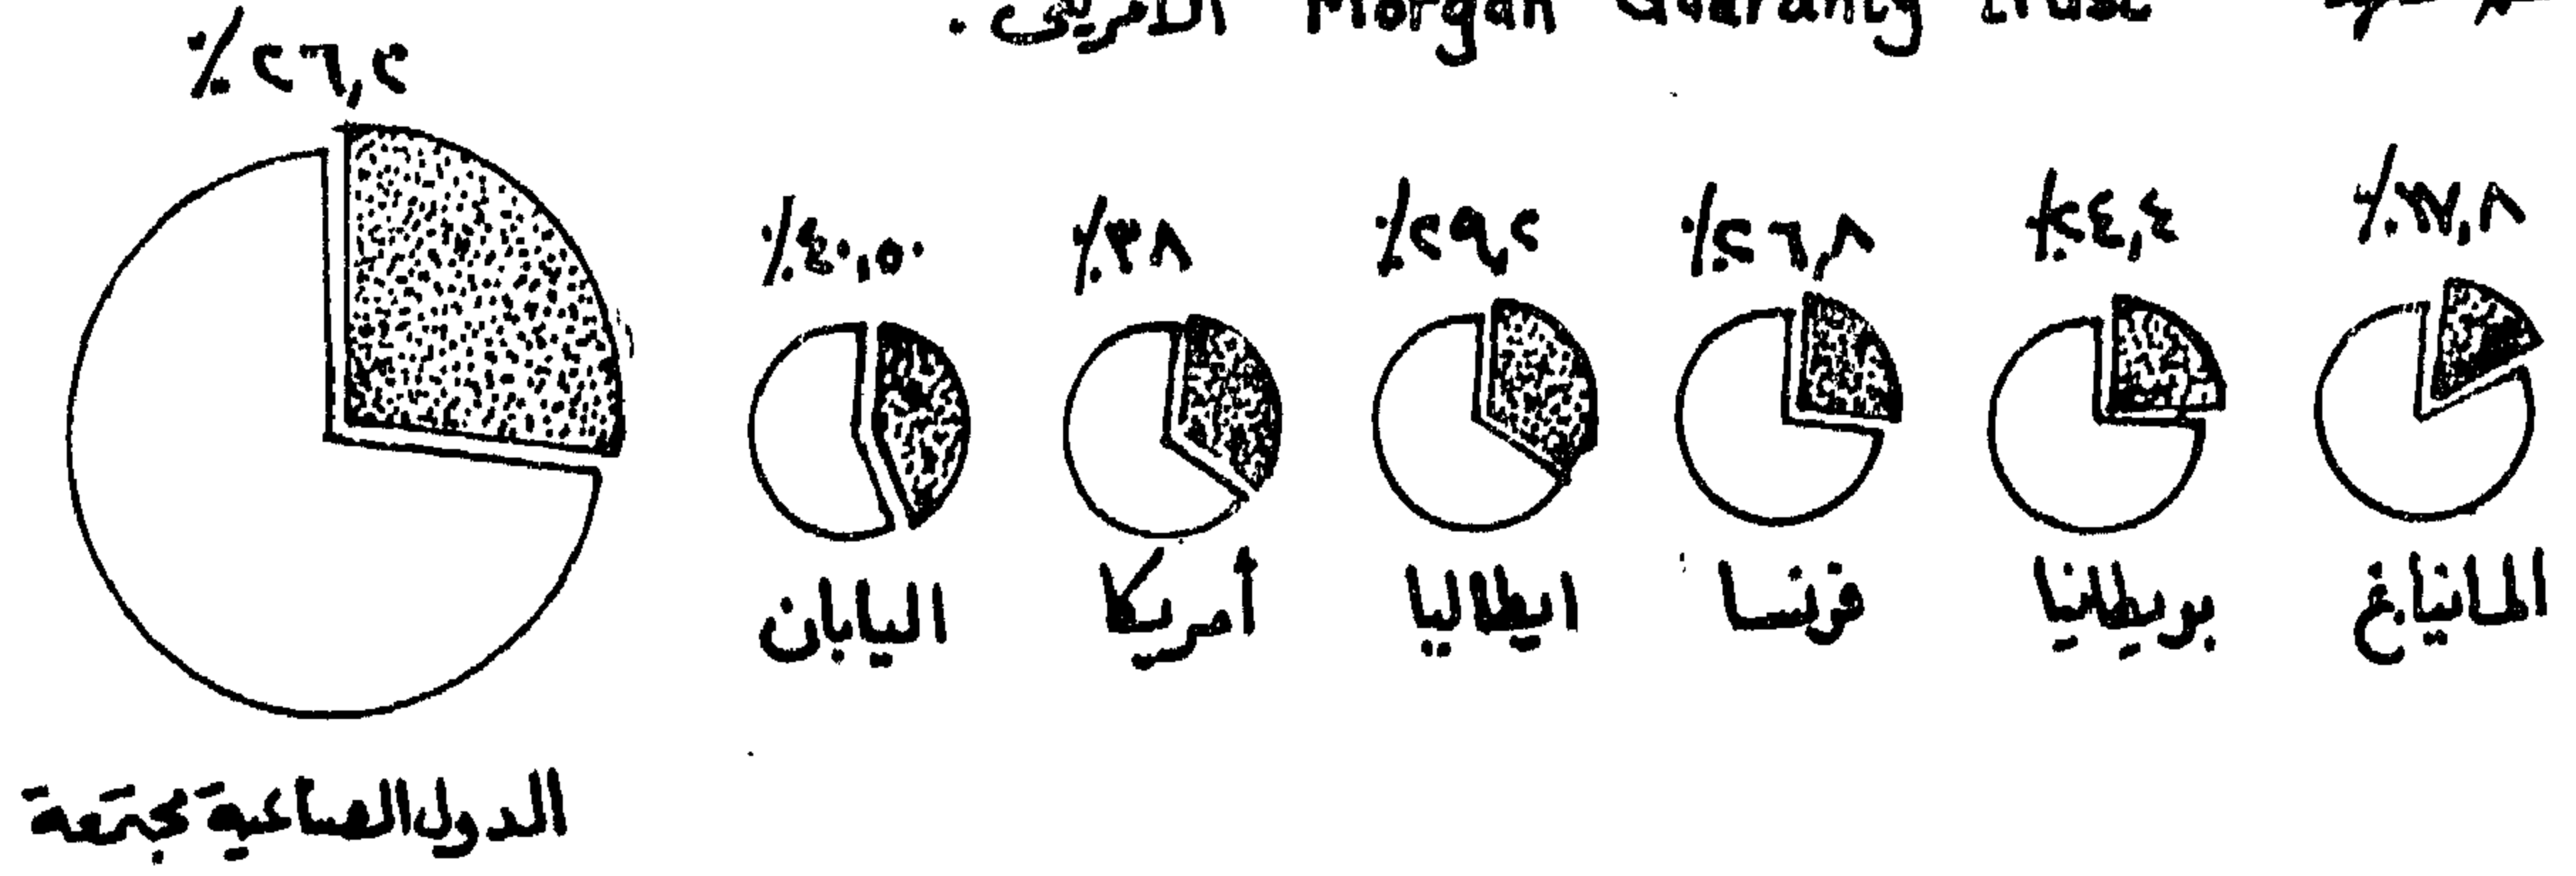 Morgan Guaranty trust الأمريكى .
٪٢٦,٢
٪١٧,٨
٪٢٤,٤
٪٢٦,٨
٪٢٩,٢
٪٣٨
٪٤٠,٥٠
المانيا غ
بريطانيا
فرنسا
ايطاليا
أمريكا
اليابان
الدول الصناعية مجتمعة